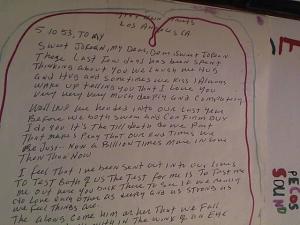 Los Angeles CA
5.10.53, To My
Sweet Jorean, My Dear, Dear, Sweet Jorean
These Last Few days has been spent
Thinking about You we Laugh we Hug
And Hug and sometimes we Kiss I Always
Wake up Telling you That I Love you
Very Very Very much
Well we headed into our Last Year
Before we both Swear and Confirm our
I do You It's The Till death do we Part
That makes Pray That our End Times we
Be Just. Now a Billion Times More in Love
Then Than Now
I Feel That I've been sent out into our Lives
To Test both of Us The Test For me Is To Test me
me out here you back There To See If we really
do Love each other as and us strong as
we Feel Things are
The Along Come him or her That we Fall
with in The Wink of an Eye
PECOS
SOUND